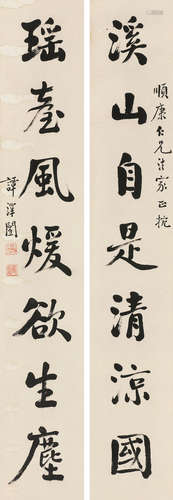 順康仁兄法家正捥
溪山自是清涼國
瑶臺風煖欲生塵
譚澤闓